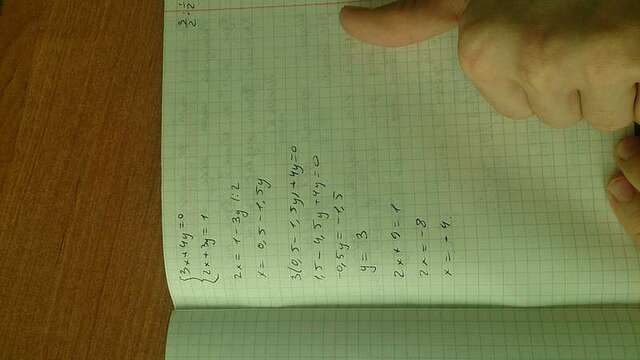 3x+4y=0
2x+3y=1
2x = 1-3y /:2
x = 0,5-1,5y
3(0,5-1,5y)+4y=0
1,5-4,5y+4y=0
-0,5y=-1,5
y= 3
2x+9=1
2x=-8
x=-4.
3/2 · 1/2